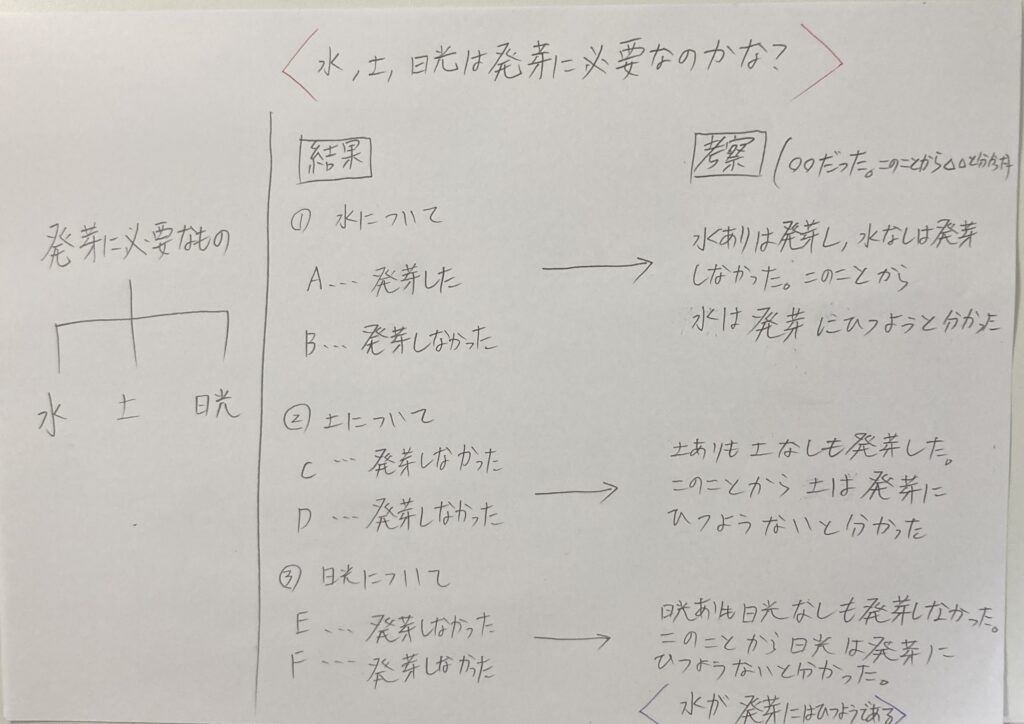 〈水,土,日光は発芽に必要なのかな?〉
発芽に必要なもの
水 土 日光
結果
① 水について
A… 発芽した
B… 発芽しなかった
② 土について
C … 発芽しなかった
D … 発芽しなかった
③ 日光について
E … 発芽しなかった
F … 発芽しなかった
考察 (○○だった。このことから△△と分かった
水ありは発芽し,水なしは発芽
しなかった。このことから
水は発芽にひつようと分かった
土ありも土なしも発芽した。
このことから土は発芽に
ひつようないと分かった
日光ありも日光なしも発芽しなかった。
このことから日光は発芽に
ひつようないと分かった。
〈水が発芽にはひつようである〉